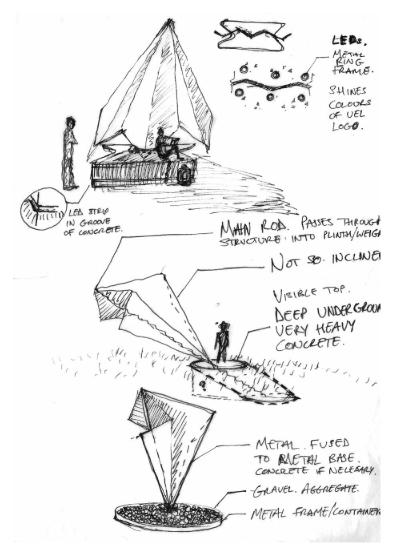 LEDs.
METAL
RING
FRAME.
SHINES
COLOURS
OF UEL
LOGO.
LED STRIP
IN GROOVE
OF CONCRETE.
MAIN ROD. PASSES THROUGH
STRUCTURE INTO PLINTH/WEIGH
NOT SO INCLINE
VISIBLE TOP.
DEEP UNDERGROUN
VERY HEAVY
CONCRETE.
METAL FUSED
TO METAL BASE.
CONCRETE IF NECESARY.
GRAVEL. AGGREGATE.
METAL FRAME/CONTAINER